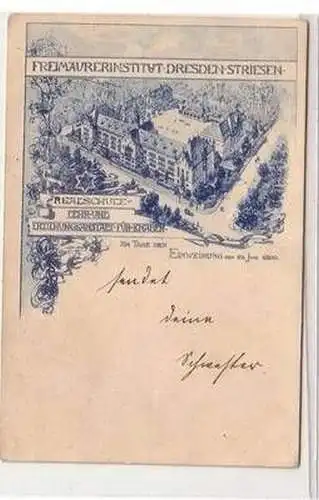 FREIMAURERINSTITUT · DRESDEN-STRIESEN ·
REALSCHULE-
LEHR-UND
ERZIEHUNGSANSTALT-FÜR-KNABEN
ZUM TAGE DER
EINWEIHUNG
sendet
deine
Schwester.